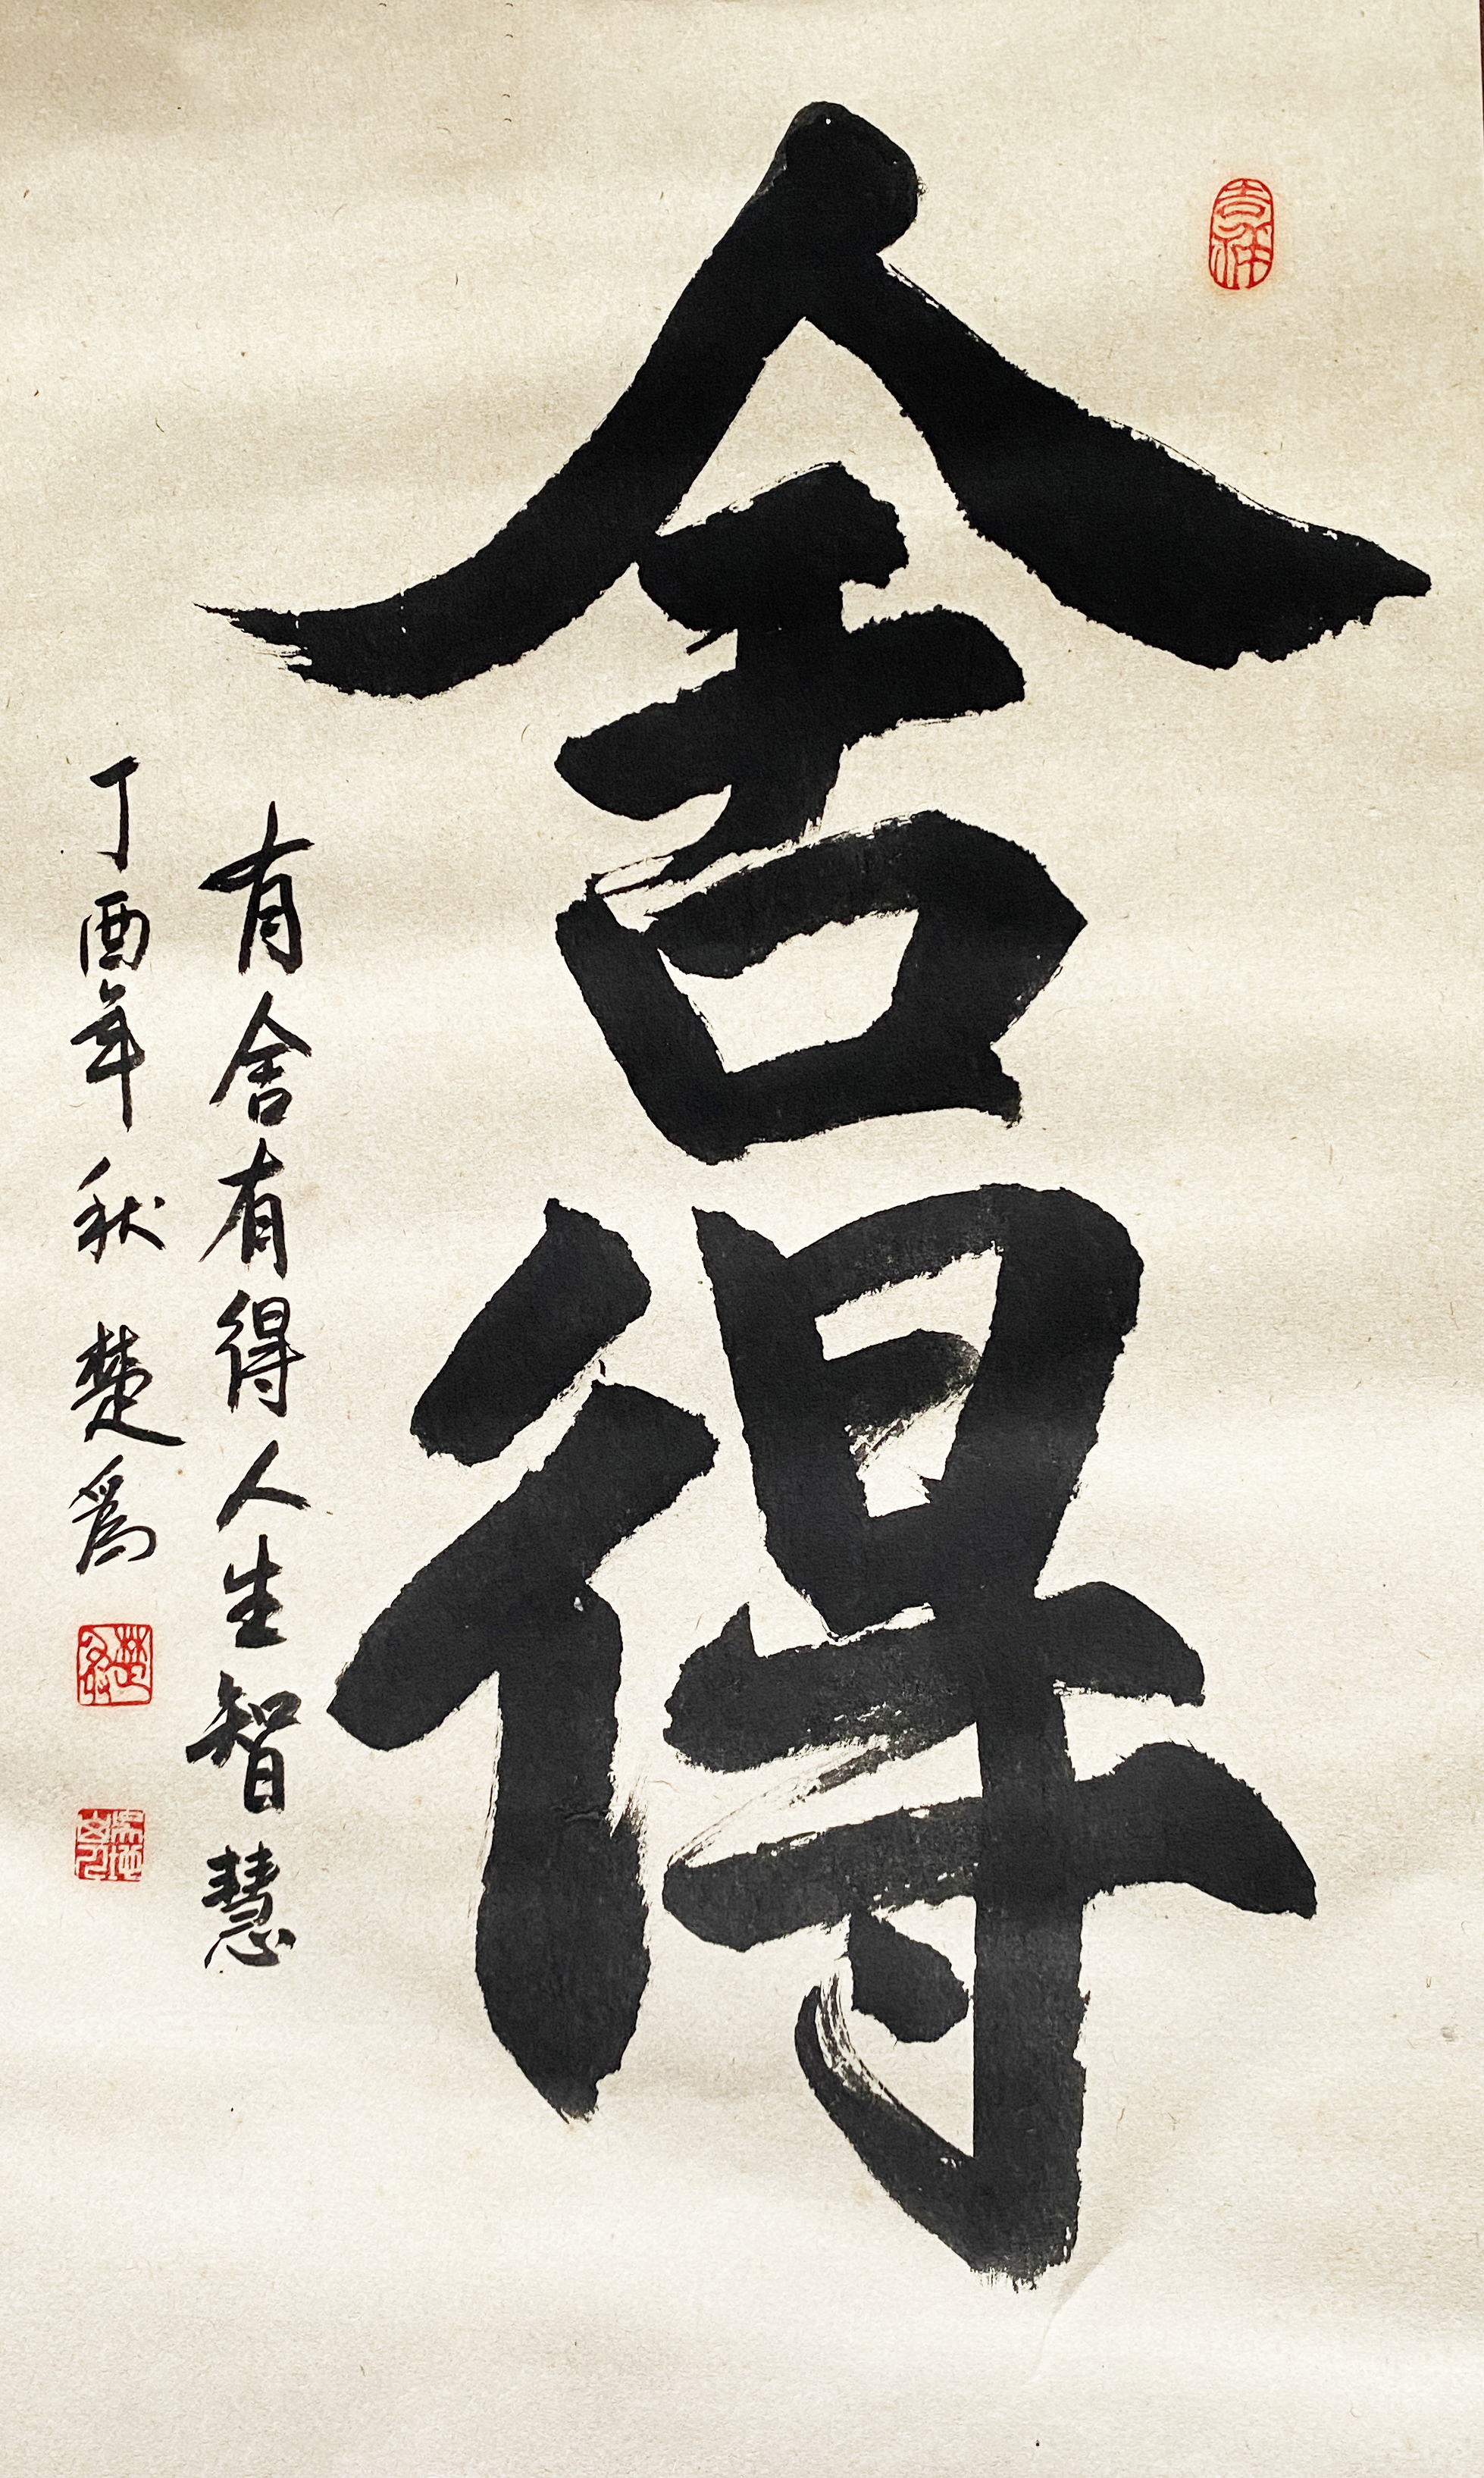 舍得
有舍有得人生智慧
丁酉年秋 楚為
吉祥